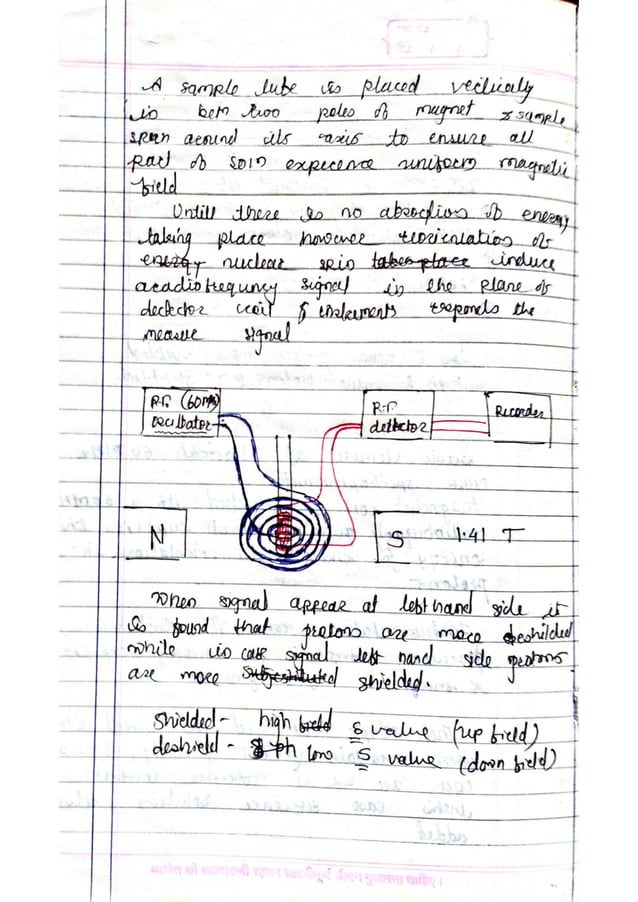 A sample tube is placed vertically
in betn two poles of magnet & sample
span around its axis to ensure all
part of soin expecence uniform magnetic
field
Untill there is no absoction of energy
taking place however reorientation of
energy nuclear spin takes place induce
a radiofrequncy signal in the plane of
dectector coil & instruments responds the
measue signal
R.F. (60MHz)
oscillator
R.F.
detector
Recorder
N
S 1.41 T
When signal appear at left hand side it
is found that protons are more deshilded
while in case signal left hand side protons
are more shielded.
shielded - high field δ value (up field)
deshield - low δ value (down field)
added